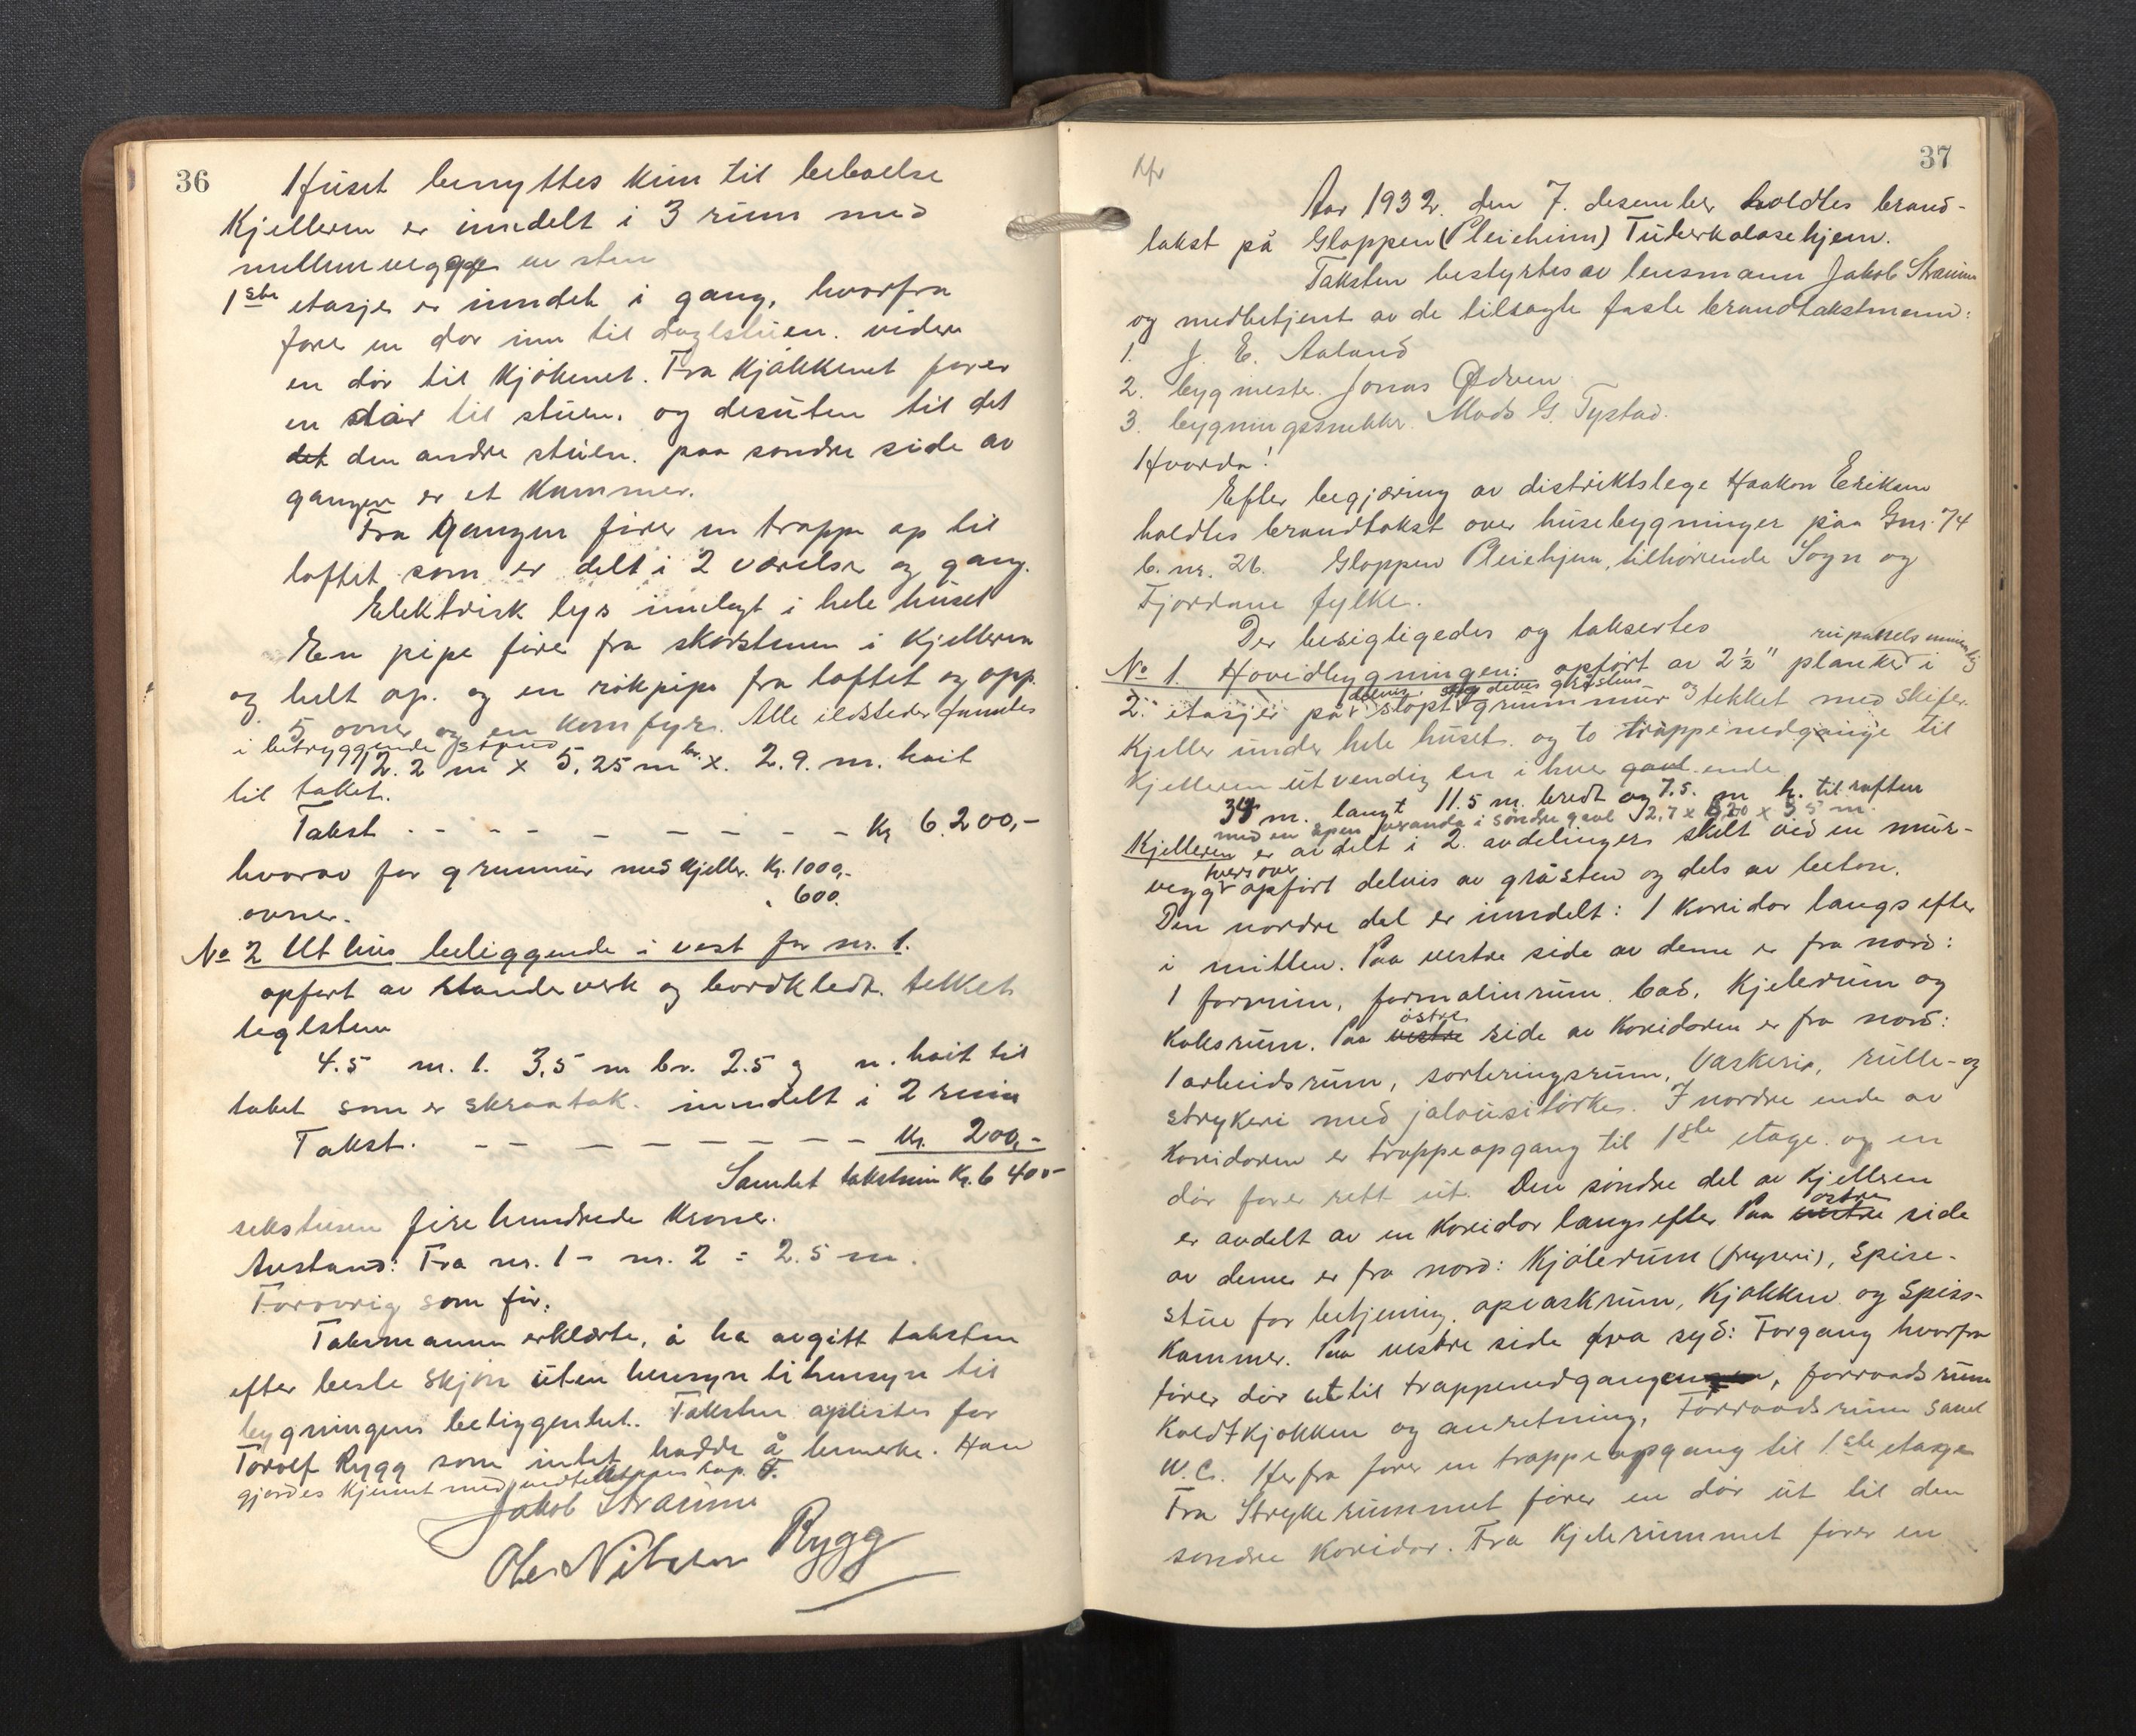 36
Huset benyttes kun til beboelse
Kjelleren er inndelt i 3 rum med
mellemvegge av sten
1ste etasje er inndelt i gang, hvorfra
fører en dør inn til daglstuen. videre
en dør til Kjøkenet. Fra Kjøkkenet fører
en dør til stuen. og desuten til det
det den andre stuen. paa søndre side av
gangen er et Kammer.
Fra gangen fører en trappe op til
loftet som er delt i 2 værelser og gang.
Elektrisk lys innlagt i hele huset
En pipe fører fra skorstenen i Kjelleren
og helt op. og en rökpipe fra loftet og opp.
5 ovner og en komfyr. Alle ildsteder fundtes
i betryggende stand
12.2 m x 5,25 m br. x. 2.9. m. høit
til taket.
Takst - - - - - - - - - Kr 6.200,-
hvorav for grunmur med Kjeller. Kr. 1000,-
ovner. " 600.
No 2 Uthus beliggende i vest for nr. 1.
opført av standerverk og bordkledt. tekket
teglsten
4.5 m. l. 3,5 m br. 2.5 m. høit til
taket som er skraatak. inndelt i 2 rum
Takst. - - - - - - - - - Kr. 200,-
Samlet takstsum Kr. 6 400-
sekstusen firehundrede Kroner.
Avstand: Fra nr. 1 - nr. 2 = 2.5 m.
Forøvrig som før.
Taksmennene erklærte, å ha avgitt taksten
efter beste skjøn uten hensyn ti hensyn til
bygningens beliggenhet. Taksten oplestes for
Torolf Rygg som intet hadde å bemerke. Han
gjordes kjennt med
Jakob Straume
Nilsen Rygg
37
Aar 1932. den 7. desember holdtes brand-
takst på Gloppen (Pleieheim) Tuberkulosehjem.
Taksten bestyrtes av lensmann Jakob Straume
og medbetjent av de tilsagte faste brandtakstmenn:
1. J. E. Aaland
2. bygmester Jonas Ødven
3. bygningssnekker. Mads G. Tystad.
Hvorda!
Efter begjæring av distriktslege Haakon Eriksen
holdtes brandtakst over husebygninger paa Gnr. 74
b. nr. 26. Gloppen Pleiehjem, tilhørende Sogn og
Fjordane fylke.
Der besigtigedes og taksertes
No 1. Hovedbygningen: opført av 2 ½" planker i
delvis og delvis gråstens
2. etasjer på støpt grunnmur og tekket med skifer.
Kjeller under hele huset. og to trappenedgange til
Kjelleren utvendig en i hver gavl ende
34 m. langt 11.5 m. bredt og 7.5. m h. til raften
med en åpen veranda i søndre gavl
Kjelleren er avdelt i 2. avdelinger skilt ved en mur-
tversover
vegg opført delvis av gråsten og dels av beton.
Den nordre del er inndelt: 1 Koridor langsefter
i mitten. Paa vestre side av denne er fra nord:
1 forrum, formalinrum. bad, Kjelerum og
østre
Koksrum. Paa vestre side av Koridoren er fra nord:
1 arbeidsrum, sorteringsrum, Vaskeri, rulle- og
strykeri med jalousitörke. I nordre ende av
Koridoren er trappeopgang til 1ste etage. og en
dør fører rett ut. Den søndre del av Kjelleren
østre
er avdelt av en Koridor langsefter Paa vestre side
av denne er fra nord: Kjølerum (fryseri), Spise-
stue for betjening, opvaskrum, Kjøkken og Spiss-
Kammer. Paa vestre side fra syd: Forgang hvorfra
fører dør ut til trappenedgangen, forraadsrum
Koldtkjøkken og anretning, Forraadsrum samt
W.C. Herfra fører en trappeopgang til 1ste etasje
Fra Strykerummet fører en dør ut til den
søndre Koridor. Fra Kjelerummet fører en